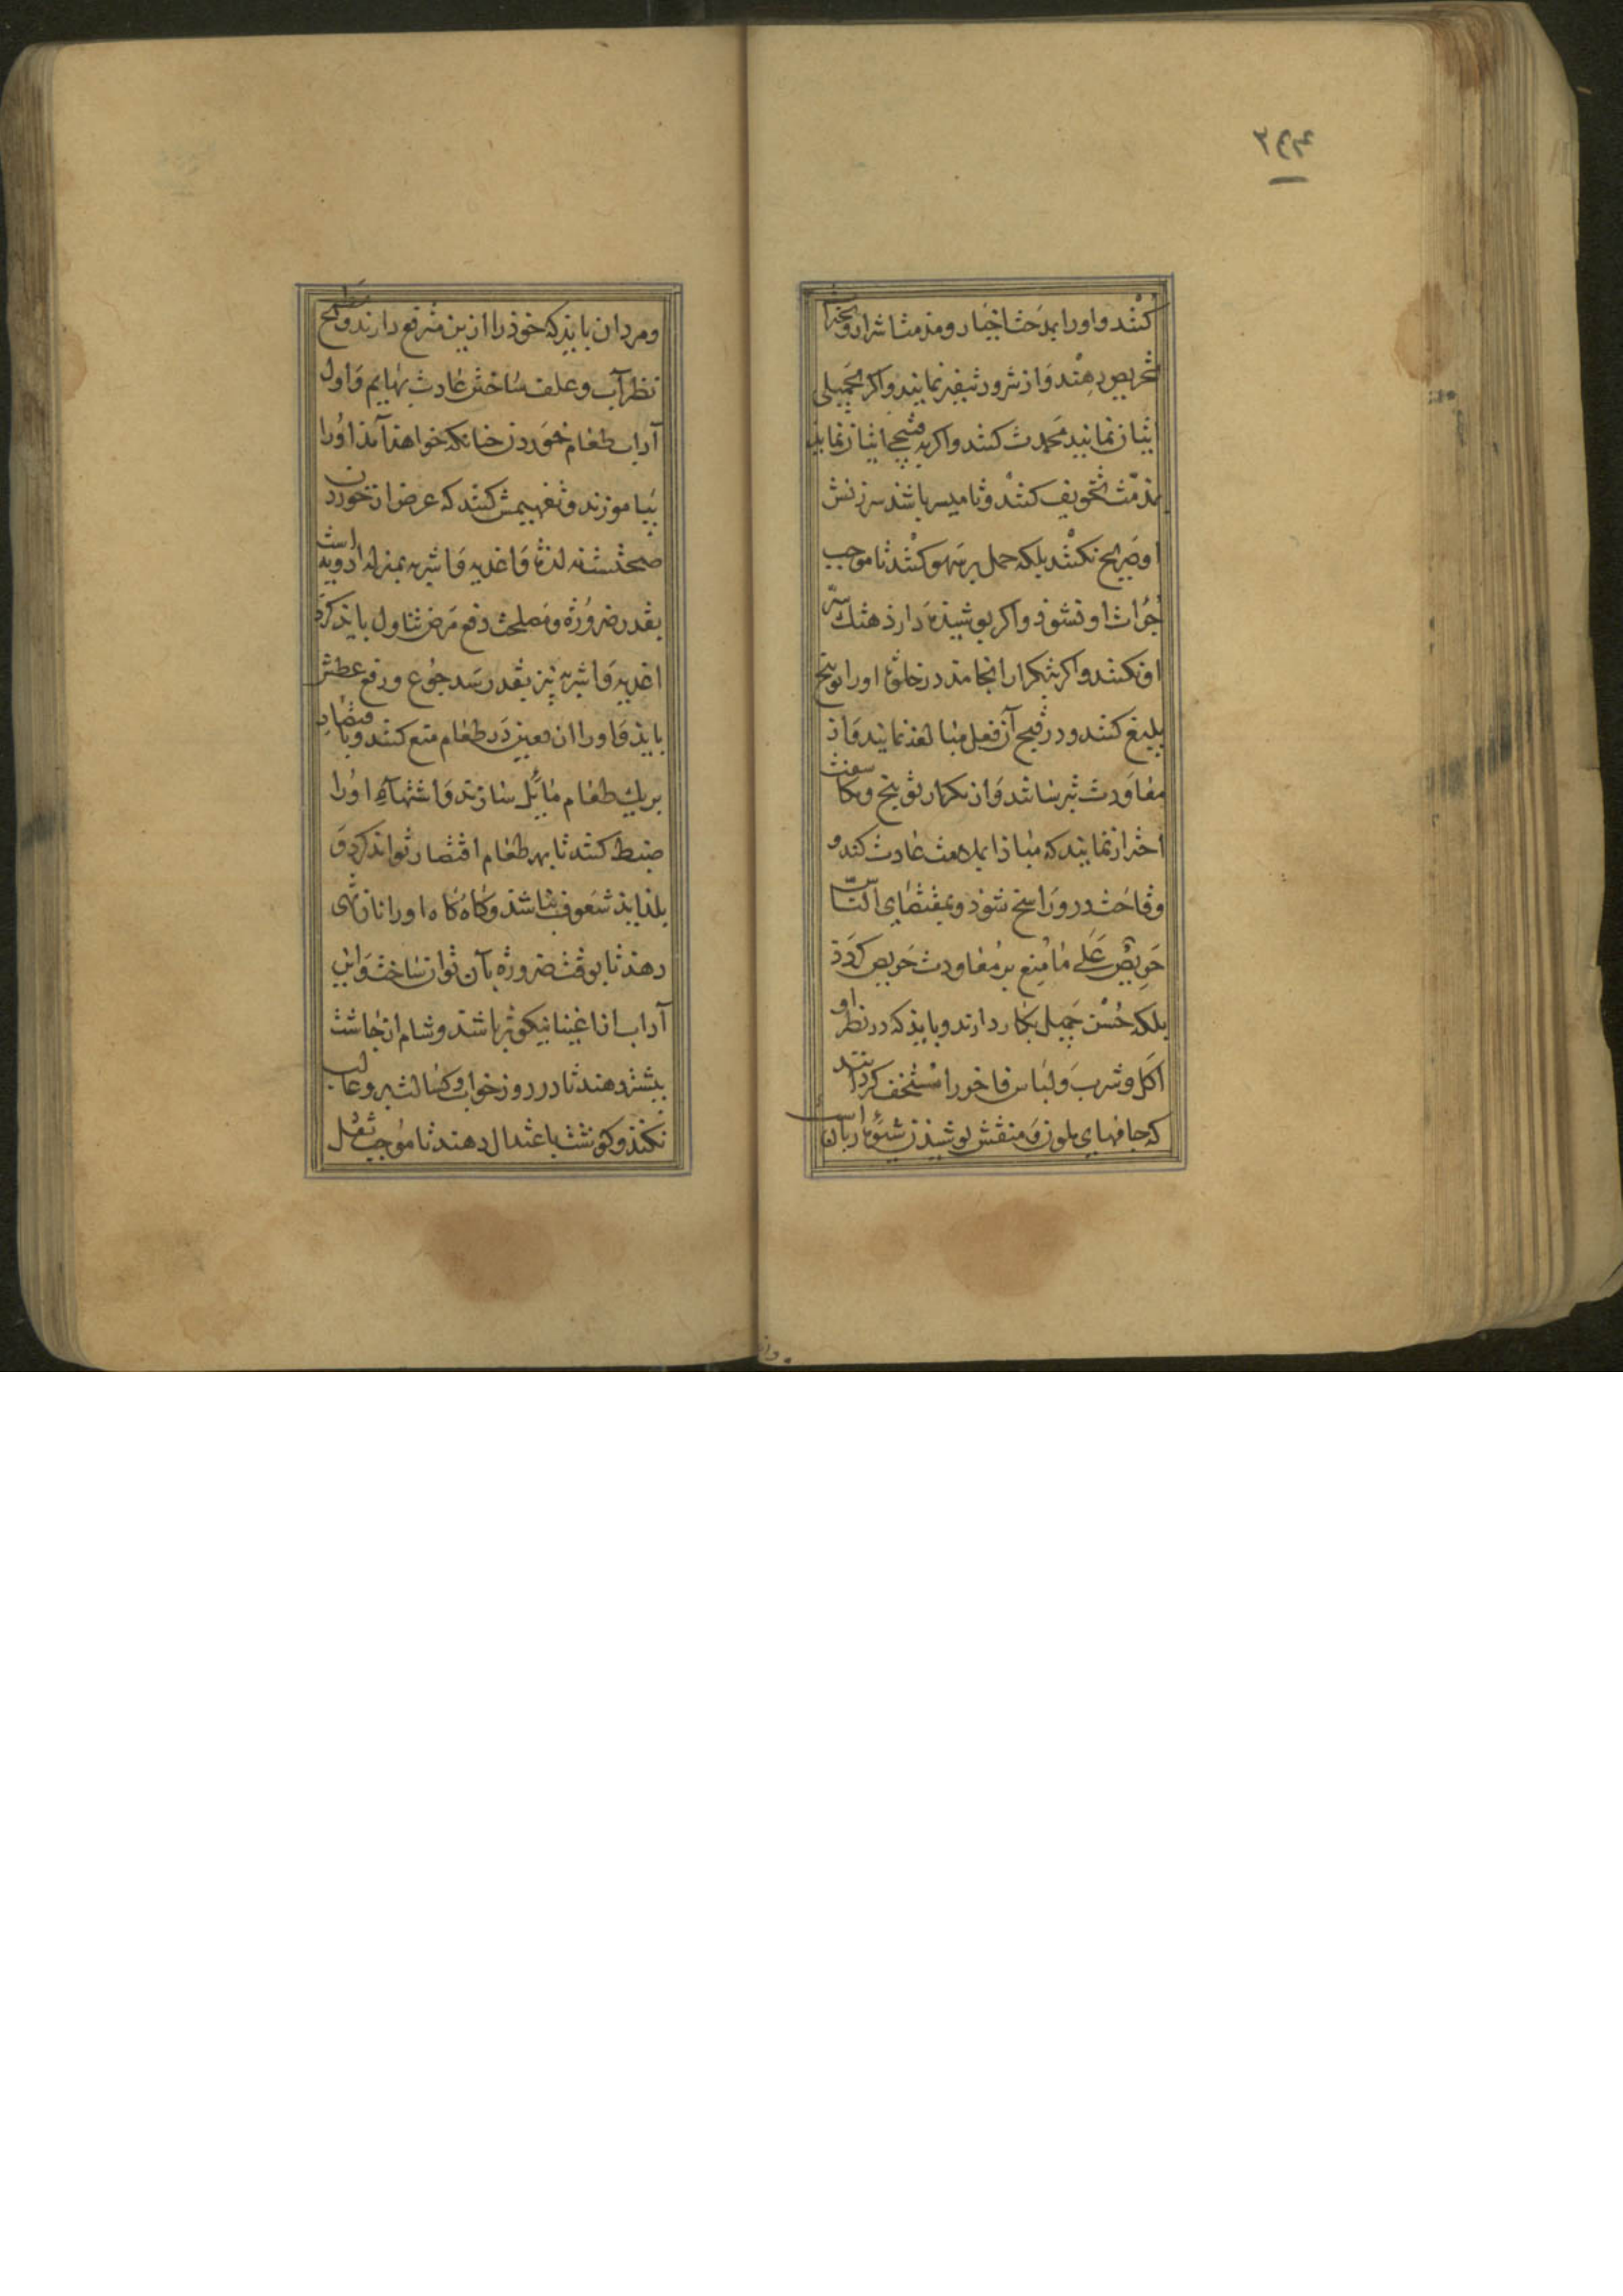 ۲۴۴
کنند و او را بمدحت اخیار و مذمت اشرار و بخیرات
تحریص دهند و از شرور تنفیر نمایند و اکر بجمیلی
اتیان نمایند محمدت کنند و اکر به قبیحی اتیان نماید
بمذمت تخویف کنند و تا میسر باشد سرزنش
او صریح نکنند بلکه حمل بر سهو کنند تا موجب
جرات او نشود و اکر پوشیده دارد هتک ستر
او نکنند و اکر بتکرار انجامد در خلوة او را توبیخ
بلیغ کنند و در قبح آن فعل مبالغه نمایند و از
معاودت بترسانند و از تکرار توبیخ و مکاشفت
احتراز نمایند که مبادا بملامت عادت کند و
وقاحت درو راسخ شود و بمقتضای الناس
حریص علی ما منع بر معاودت حریص کردد
بلکه حسن جمیل بکار دارند و باید که در نظر او
اکل و شرب و لباس فاخر را مستخف کردانند
که جامهای ملون و منقش پوشیدن شیوه زنانست
و مردان باید که خود را ازین مترفع دارند و مطمح
نظر آب و علف ساختن عادت بهایم و اول
آداب طعام خوردن چنانکه خواهد آمد او را
بیاموزند و تفهیمش کنند که غرض از خوردن
صحتست نه لذة و اغذیه و اشربه بمنزله ادویه است
بقدر ضرورة و مصلحت دفع مرض تناول باید کرد
اغذیه و اشربه نیز بقدر سد جوع و رفع عطش
باید و او را از تعیین در طعام منع کنند و باقتصار
بر یک طعام مایل سازند و اشتهاء او را
ضبط کنند تا بهر طعام اقتصار تواند کرد و
بلذاید شعوف نباشد و کاه کاه او را نان تهی
دهند تا بوقت ضرورة بآن تواند ساخت و این
آداب از اغنیا نیکوتر باشد و شام از چاشت
بیشتر دهند تا در روز خواب و کسالت برو غالب
نکند و کوشت باعتدال دهند تا موجب ثقل